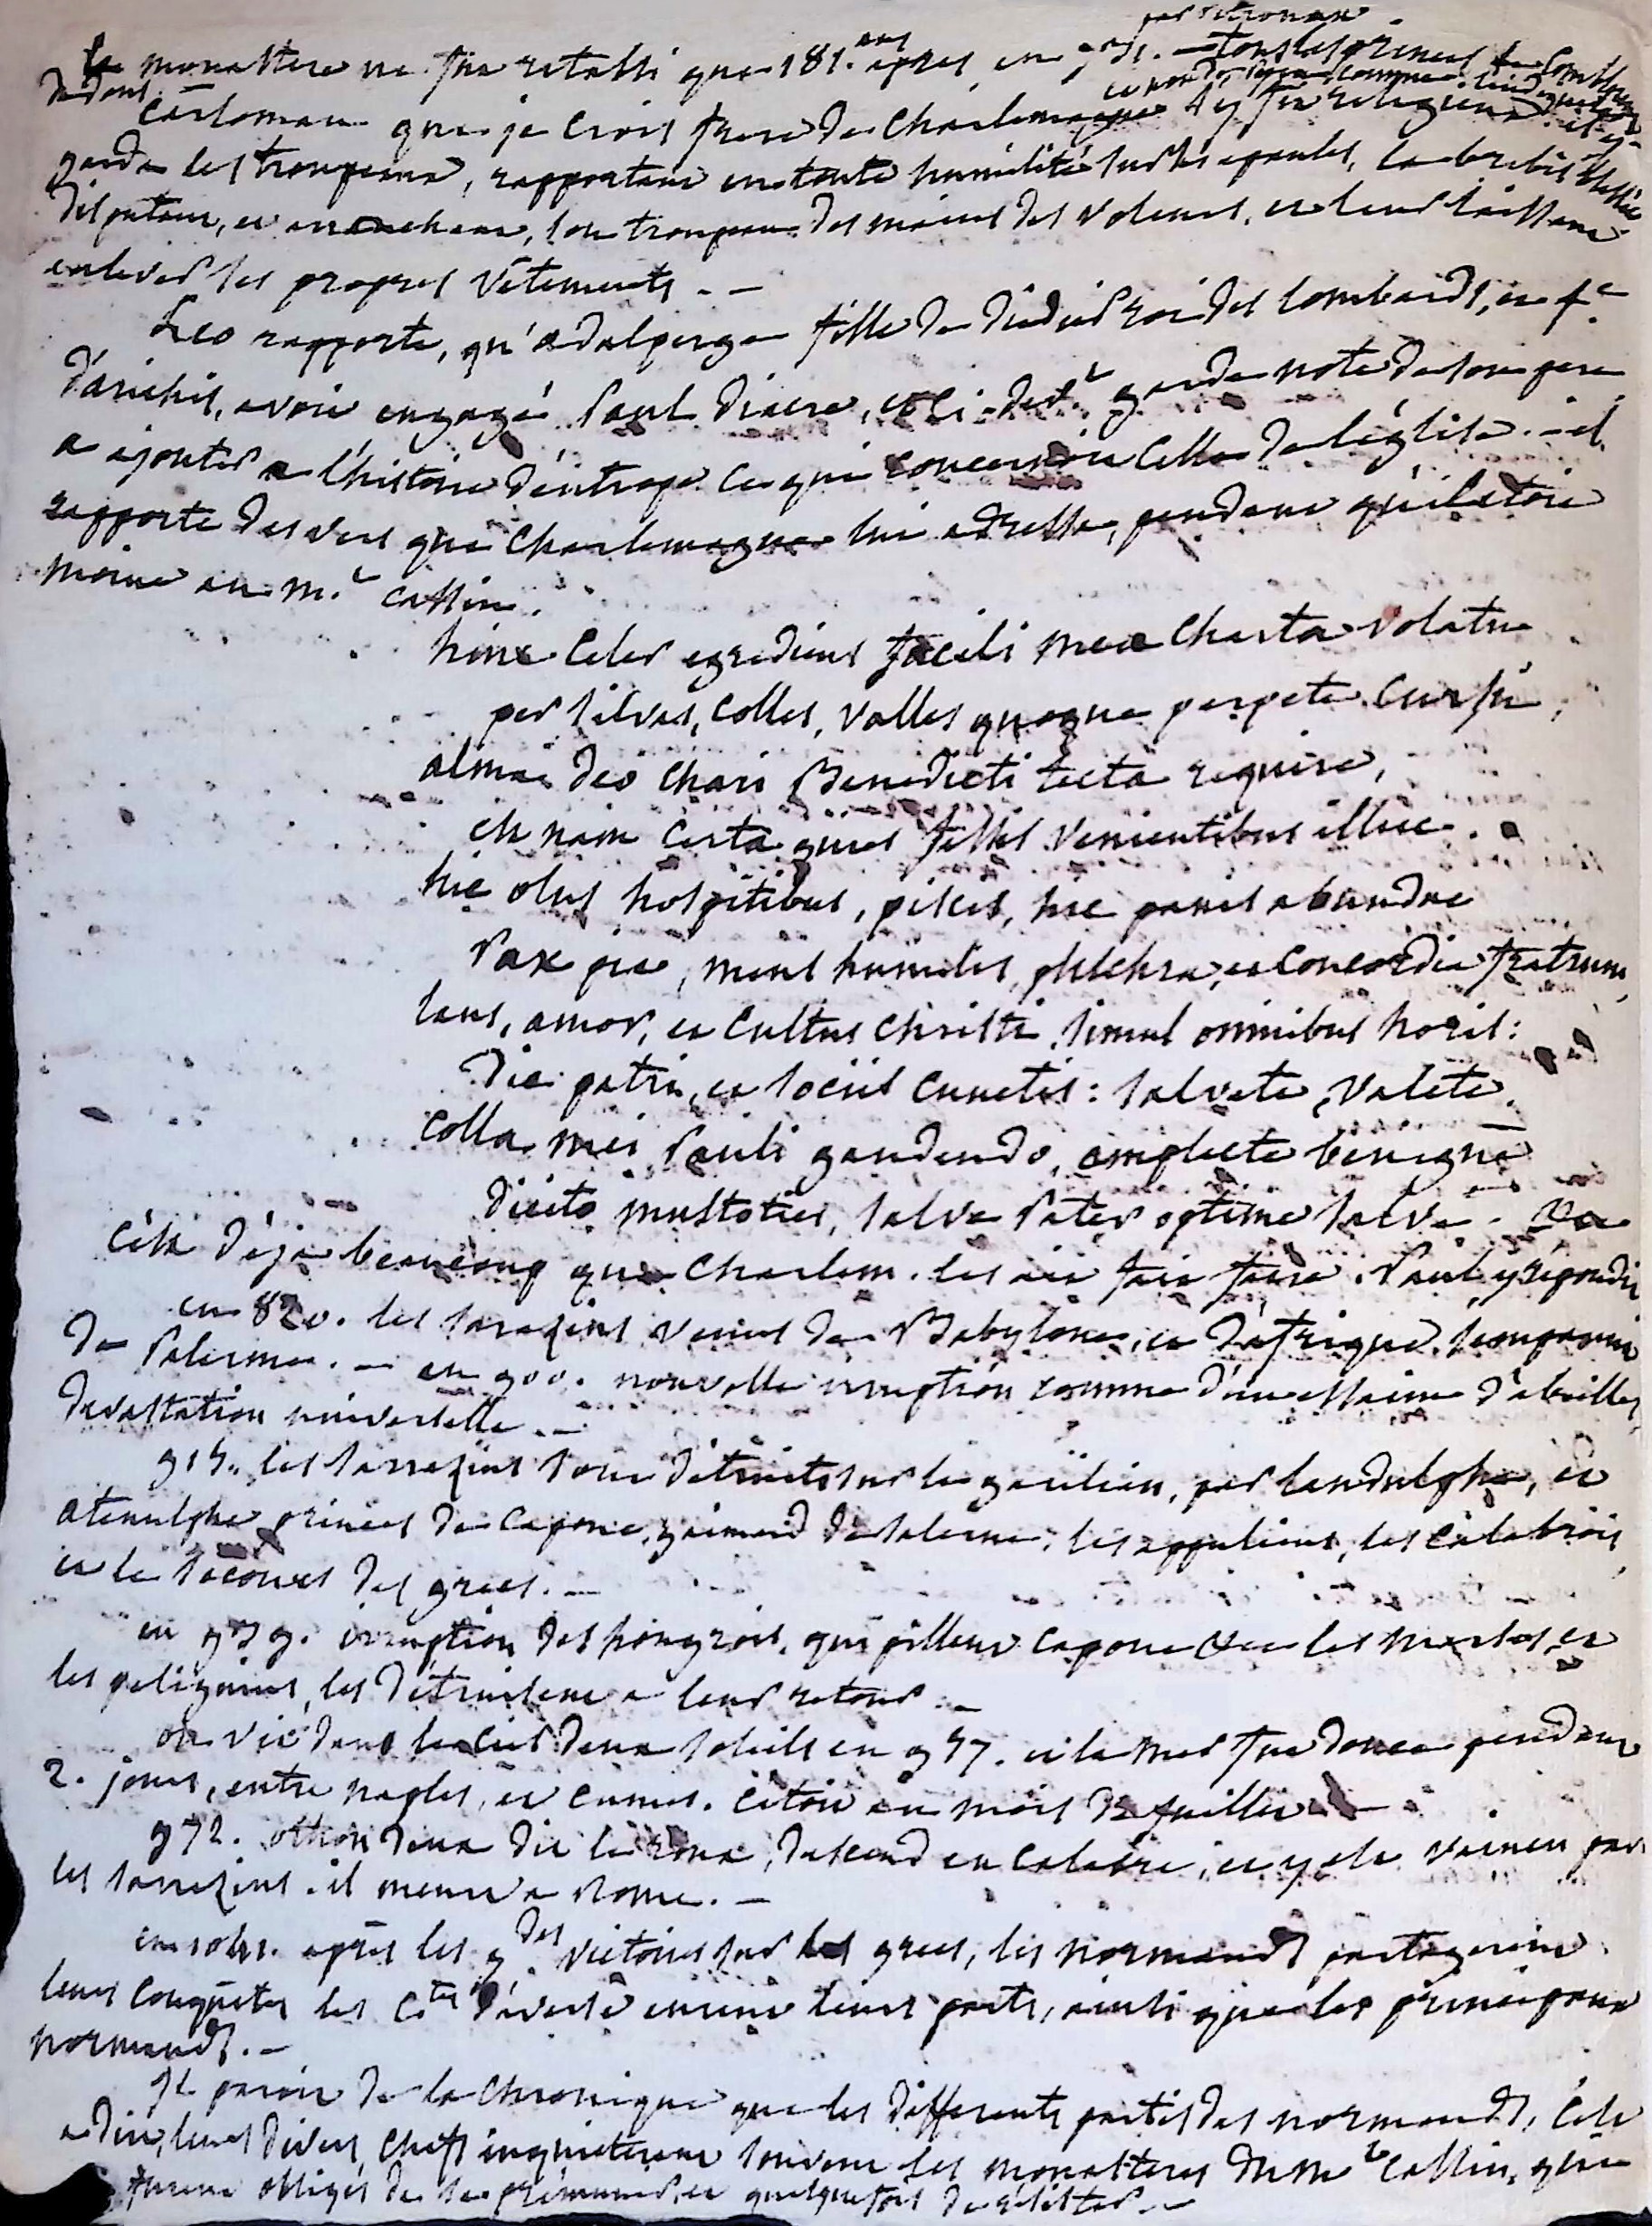 par Petronax.
le monastere ne fut retabli que 181. ans après, en 731. — tous les princes
de dons.
Carloman que je crois frere de Charlemagne s'y fit religieux. il y
garda les troupeaux, rapportant en toute humilité sur ses epaules, la brebis blessée
disputant, et arrachant, son troupeau des mains des voleurs, et leur laissant
enlever ses propres vêtements. —
Leo rapporte, qu'adalperge fille de Didier roi des lombards, et fe.
d'arichis, avoit engagé Paul Diacre, garde note de son pere
a ajouter a l'histoire d'eutrope ce qui concernoit celle de l'église. — il
rapporte des vers que Charlemagne lui adressa, pendant qu'il etoit
moine au mt. Cassin.
hinc Celer egrediens facili mea Charta volatu
per silvas, Colles, Valles quoque perpete Cursu,
alma deo Chari Benedicti tecta require,
est nam Certa quies fessis Venientibus illuc.
hic olus hospitibus, pisces, hic panis abundat
Pax pia, mens humilis, pulchra, et Concordia fratrum,
laus, amor, et Cultus Christi simul omnibus horis:
Dic patri, et sociis Cunctis: salvete, Valete.
Colla mei Pauli gaudendo, amplecte benigne
Dicito multoties, salve Pater optime salve.
C'est déja beaucoup que Charlem. les ait fait faire. Paul y repondit
en 820. les sarazins venus de Babylone, et d'afrique s'emparent
de Palerme. — en 900. nouvelle irruption comme d'un essaim d'abeilles,
devastation universelle. —
915. les sarrazins sont détruits sur le garilian, par landulphe, et
atenulphe princes de Capoue, gaimard de salerne, les appuliens, les Calabrois,
et le secours des grecs. —
en 939. irruption des hongrois, qui pillent Capoue &ce les marses, et
les peligniens, les détruisent a leur retour. —
on vit dans le Ciel deux soleils en 957. et la mer fut douce pendant
2. jours, entre naples, et Cumes. C'étoit au mois de juillet. —
972. othon deux dit le roux, descend en Calabre, et y est vaincu par
les sarrazins. il meurt a Rome. —
après les gdes. victoires sur les grecs, les normands partagerent
leurs Conquêtes les Ctes d'averse eurent leurs parts, ainsi que les principaux
normands. —
Il paroit de la Chronique que les differents partis des normands, C'est
a dire, leurs divers Chefs inquieterent souvent les monasteres du mt Cassin, qui
furent obligés de se premunir, et quelquefois de résister. —